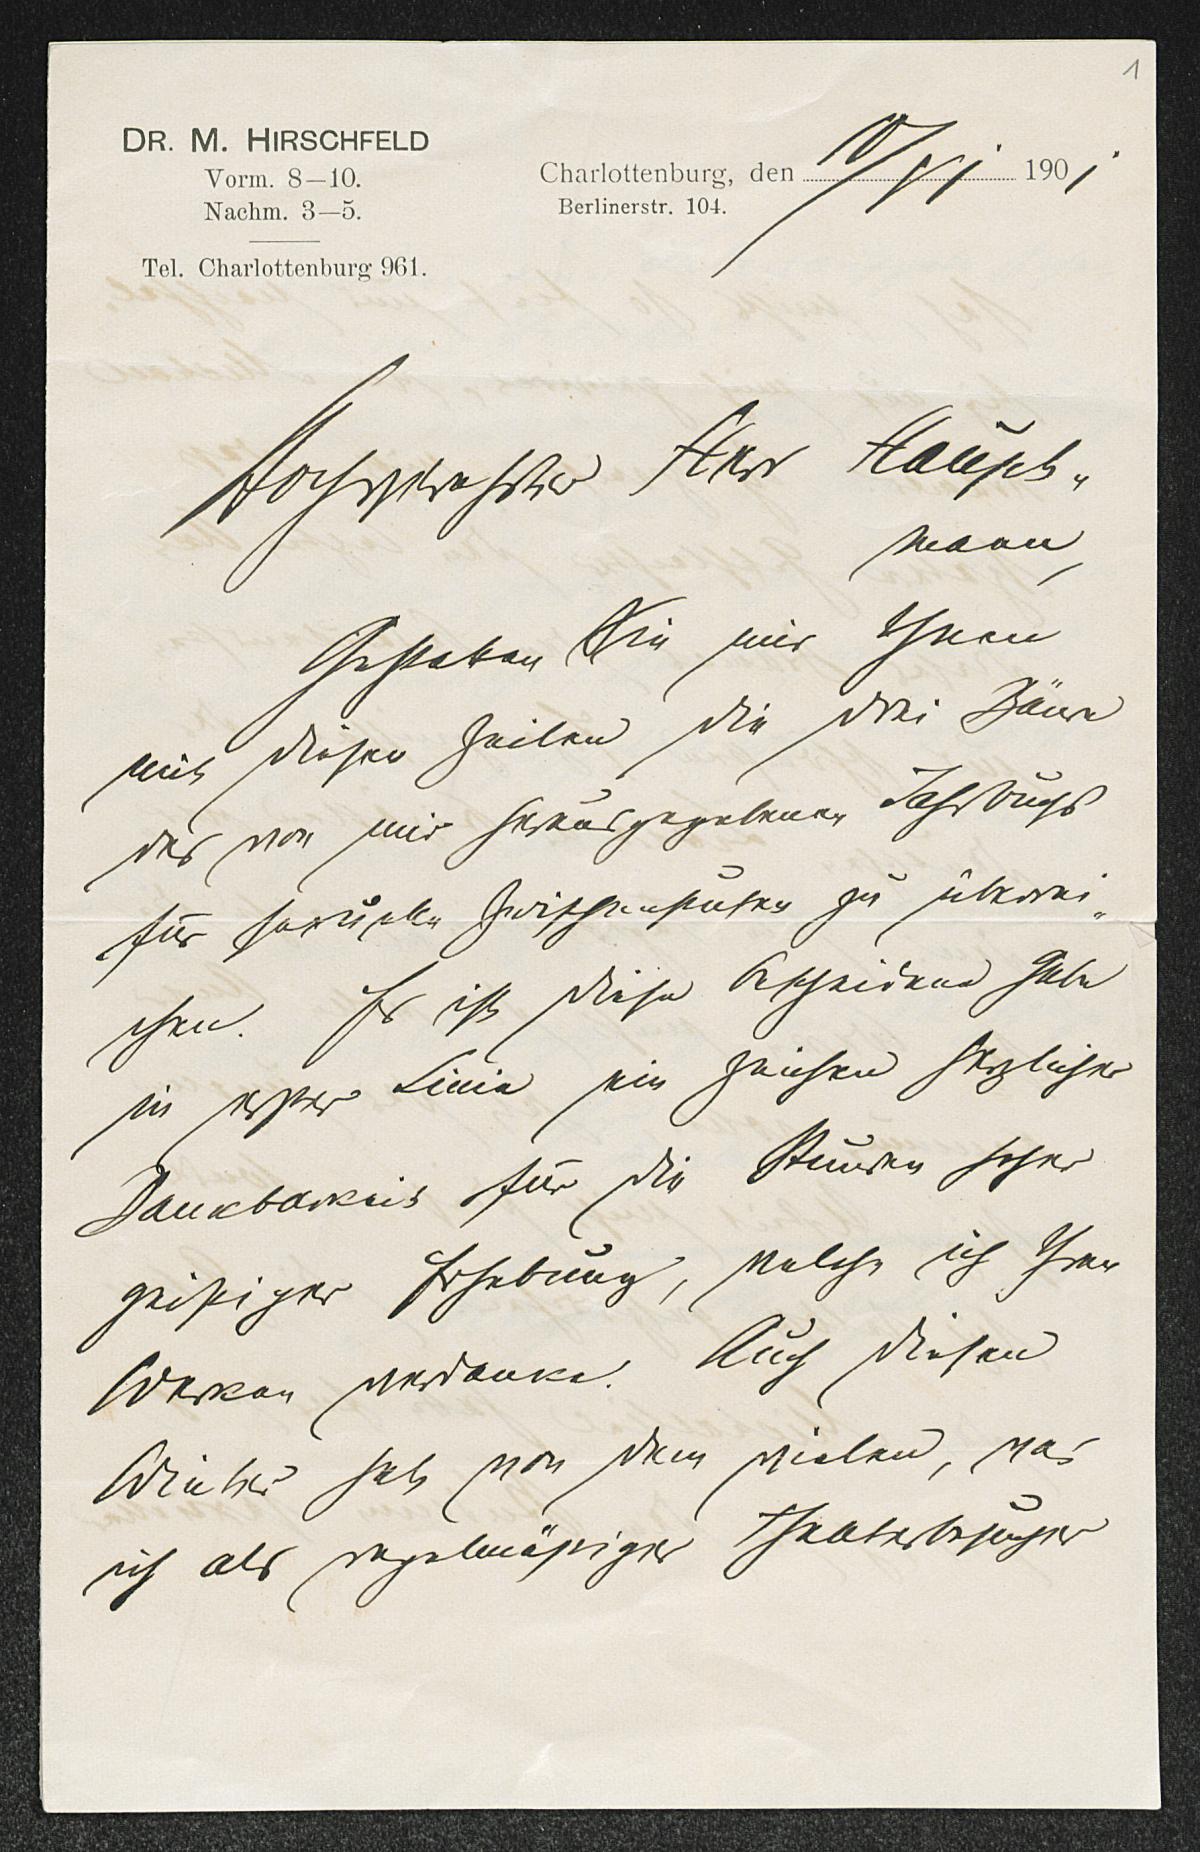 1
DR. M. HIRSCHFELD
Vorm. 8—10.
Nachm. 3—5.
Tel. Charlottenburg 961.
Charlottenburg, den 10/VI 1901
Berlinerstr. 104.
Hochverehrter Herr Haupt-
mann,
Gestatten Sie mir Ihnen
mit diesen Zeilen die drei Bände
des von mir herausgegebenen Jahrbuchs
für sexuelle Zwischenstufen zu überrei-
chen. Es ist diese bescheidene Gabe
in erster Linie ein Zeichen herzlicher
Dankbarkeit für die Stunden hoher
geistiger Erhebung, welche ich Ihren
Werken verdanke. Auch diesen
Winter hat von dem vielen, was
ich als regelmäßiger Theaterbesucher